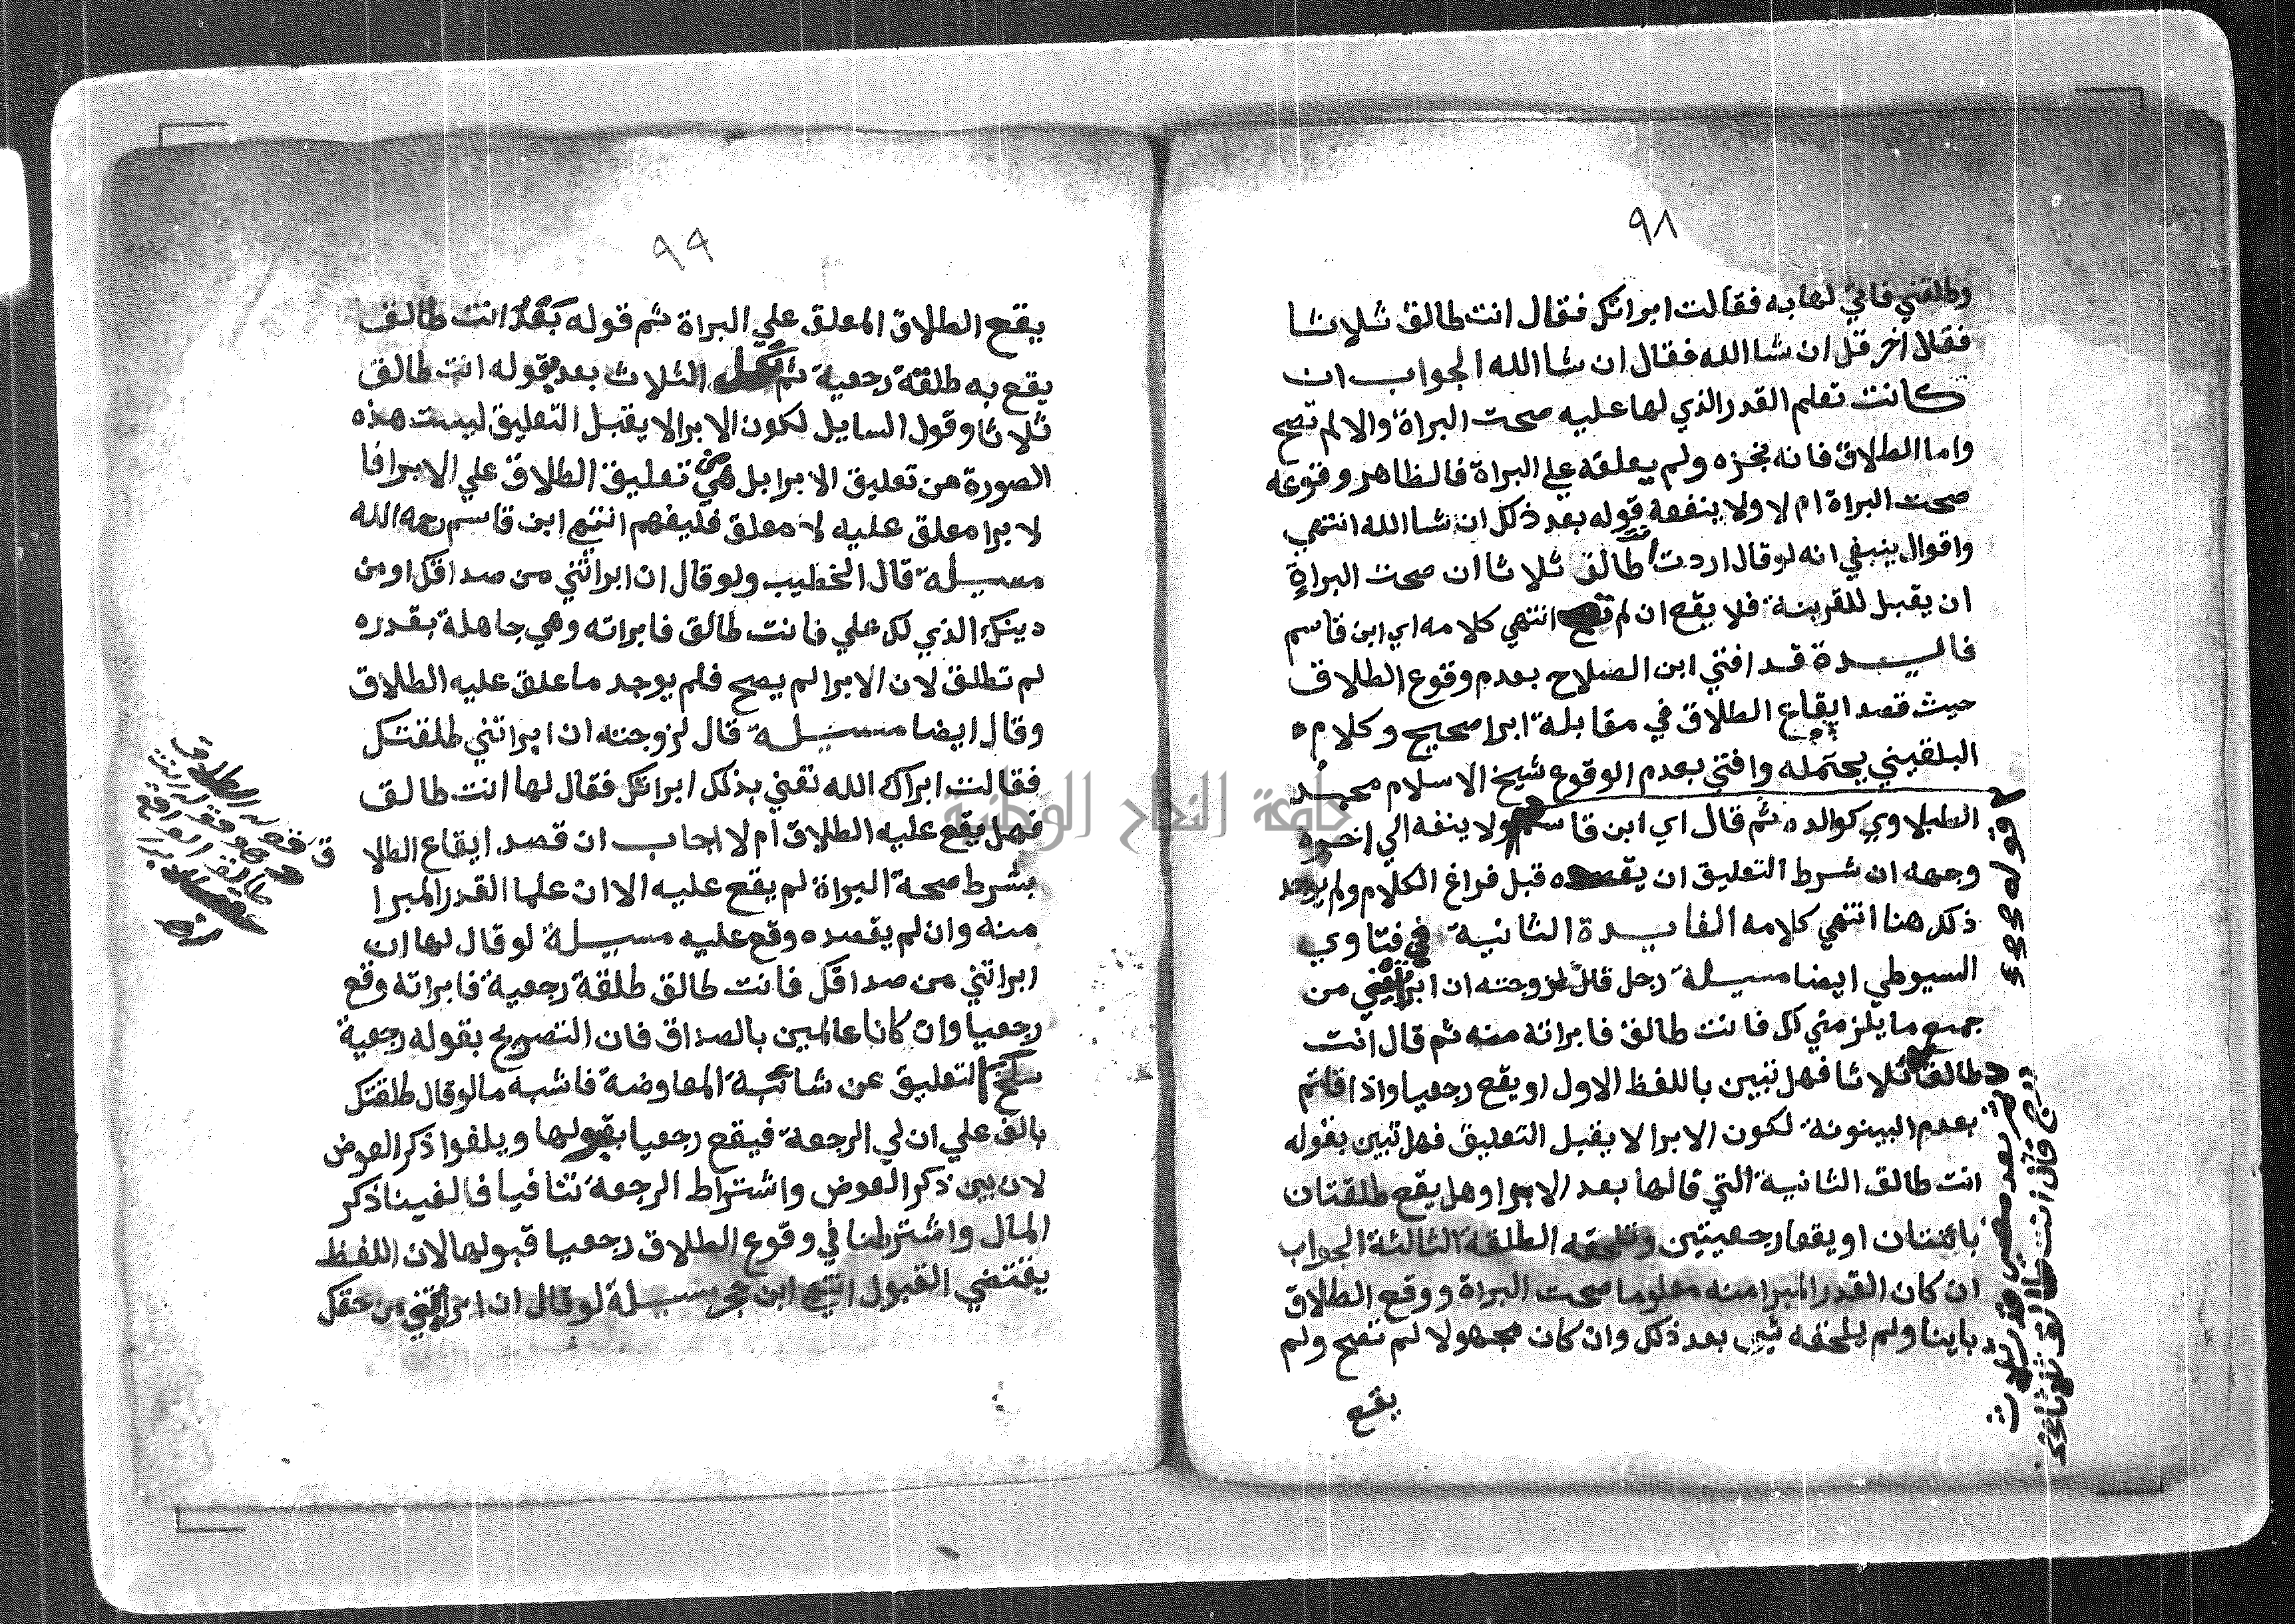 ٩٨
وطلقني فاني لها به فقالت ابراتك فقال انت طالق ثلاثا
فقال اخر قل ان شا الله فقال ان شا الله الجواب ان
كانت تعلم القدر الذي لها عليه صحت البراة والا لم تصح
واما الطلاق فانه نجزه ولم يعلقه علي البراة فالظاهر وقوعه
صحت البراة ام لا ولا ينفعه قوله بعد ذلك ان شا الله انتهي
واقوال ينبغي انه لو قال اردت طالق ثلاثا ان صحت البراة
ان يقبل للقرينة فلا يقع ان لم تصح انتهي كلامه اي ابن قاسم
فاليدة قد افتي ابن الصلاح بعدم وقوع الطلاق
حيث قصد ايقاع الطلاق في مقابلة ابرا صحيح وكلام
البلقيني يحتمله وافتي بعدم الوقوع شيخ الاسلام محمد
الطبلاوي كوالده ثم قال اي ابن قاسم ولا ينفه الي اخره
وجهه ان شرط التعليق ان يقصده قبل فراغ الكلام ولم يوجد
ذلك هنا انتهي كلامه الفايدة الثانية في فتاوي
السيوطي ايضا مسيلة رجل قال لزوجته ان ابراتني من
جميع ما يلزمني لك فانت طالق فابراته منه ثم قال انت
طالق ثلاثا فهل تبين باللفظ الاول او يقع رجعيا واذا قلتم
بعدم البينونة لكون الابرا لا يقبل التعليق فهل تبين بقوله
انت طالق الثانية التي قالها بعد الابرا وهل يقع طلقتان
بائنتان او يقعا رجعيتين وتلحقه الطلقة الثالثة الجواب
ان كان القدر المبرا منه معلوما صحت البراة ووقع الطلاق
باينا ولم يلحقه شي بعد ذلك وان كان مجهولا لم تصح ولم
يقع
قوله
ثم قال انت طالق ثلاثا
٩٩
يقع الطلاق المعلق علي البراة ثم قوله بعد انت طالق
يقع به طلقة رجعية ثم تكمل الثلاث بعد بقوله انت طالق
ثلاثا وقول السايل لكون الابرا لا يقبل التعليق ليست هذه
الصورة من تعليق الابرا بل هي من تعليق الطلاق علي الابرا فا
لابرا معلق عليه لا معلق فليفهم انتهي ابن قاسم رحمه الله
مسيلة قال الخطيب ولو قال ان ابراتني من صداقك او من
دينك الذي لك علي فانت طالق فابراته وهي جاهلة بقدره
لم تطلق لان الابرا لم يصح فلم يوجد ما علق عليه الطلاق
وقال ايضا مسيلة قال لزوجته ان ابراتني طلقتك
فقالت ابراك الله تعني بذلك ابراتك فقال لها انت طالق
فهل يقع عليه الطلاق ام لا اجاب ان قصد ايقاع الطلا
ق
بشرط صحة البراة لم يقع عليه الا ان علما القدر المبرا
منه وان لم يقصده وقع عليه مسيلة لو قال لها ان
ابراتني من صداقك فانت طالق طلقة رجعية فابراته وقع
رجعيا وان كانا عالمين بالصداق فان التصريح بقوله رجعية
سلخ التعليق عن شائبة المعاوضة فاشبه ما لو قال طلقتك
بالف علي ان لي الرجعة فيقع رجعيا بقبولها ويلغوا ذكر العوض
لان بين ذكر العوض واشتراط الرجعة تنافيا فالغينا ذكر
المال واشترطنا في وقوع الطلاق رجعيا قبولها لان اللفظ
يقتضي القبول انتهي ابن حجر مسيلة لو قال ان ابراتني من حقك
جامعة النجاح الوطنية